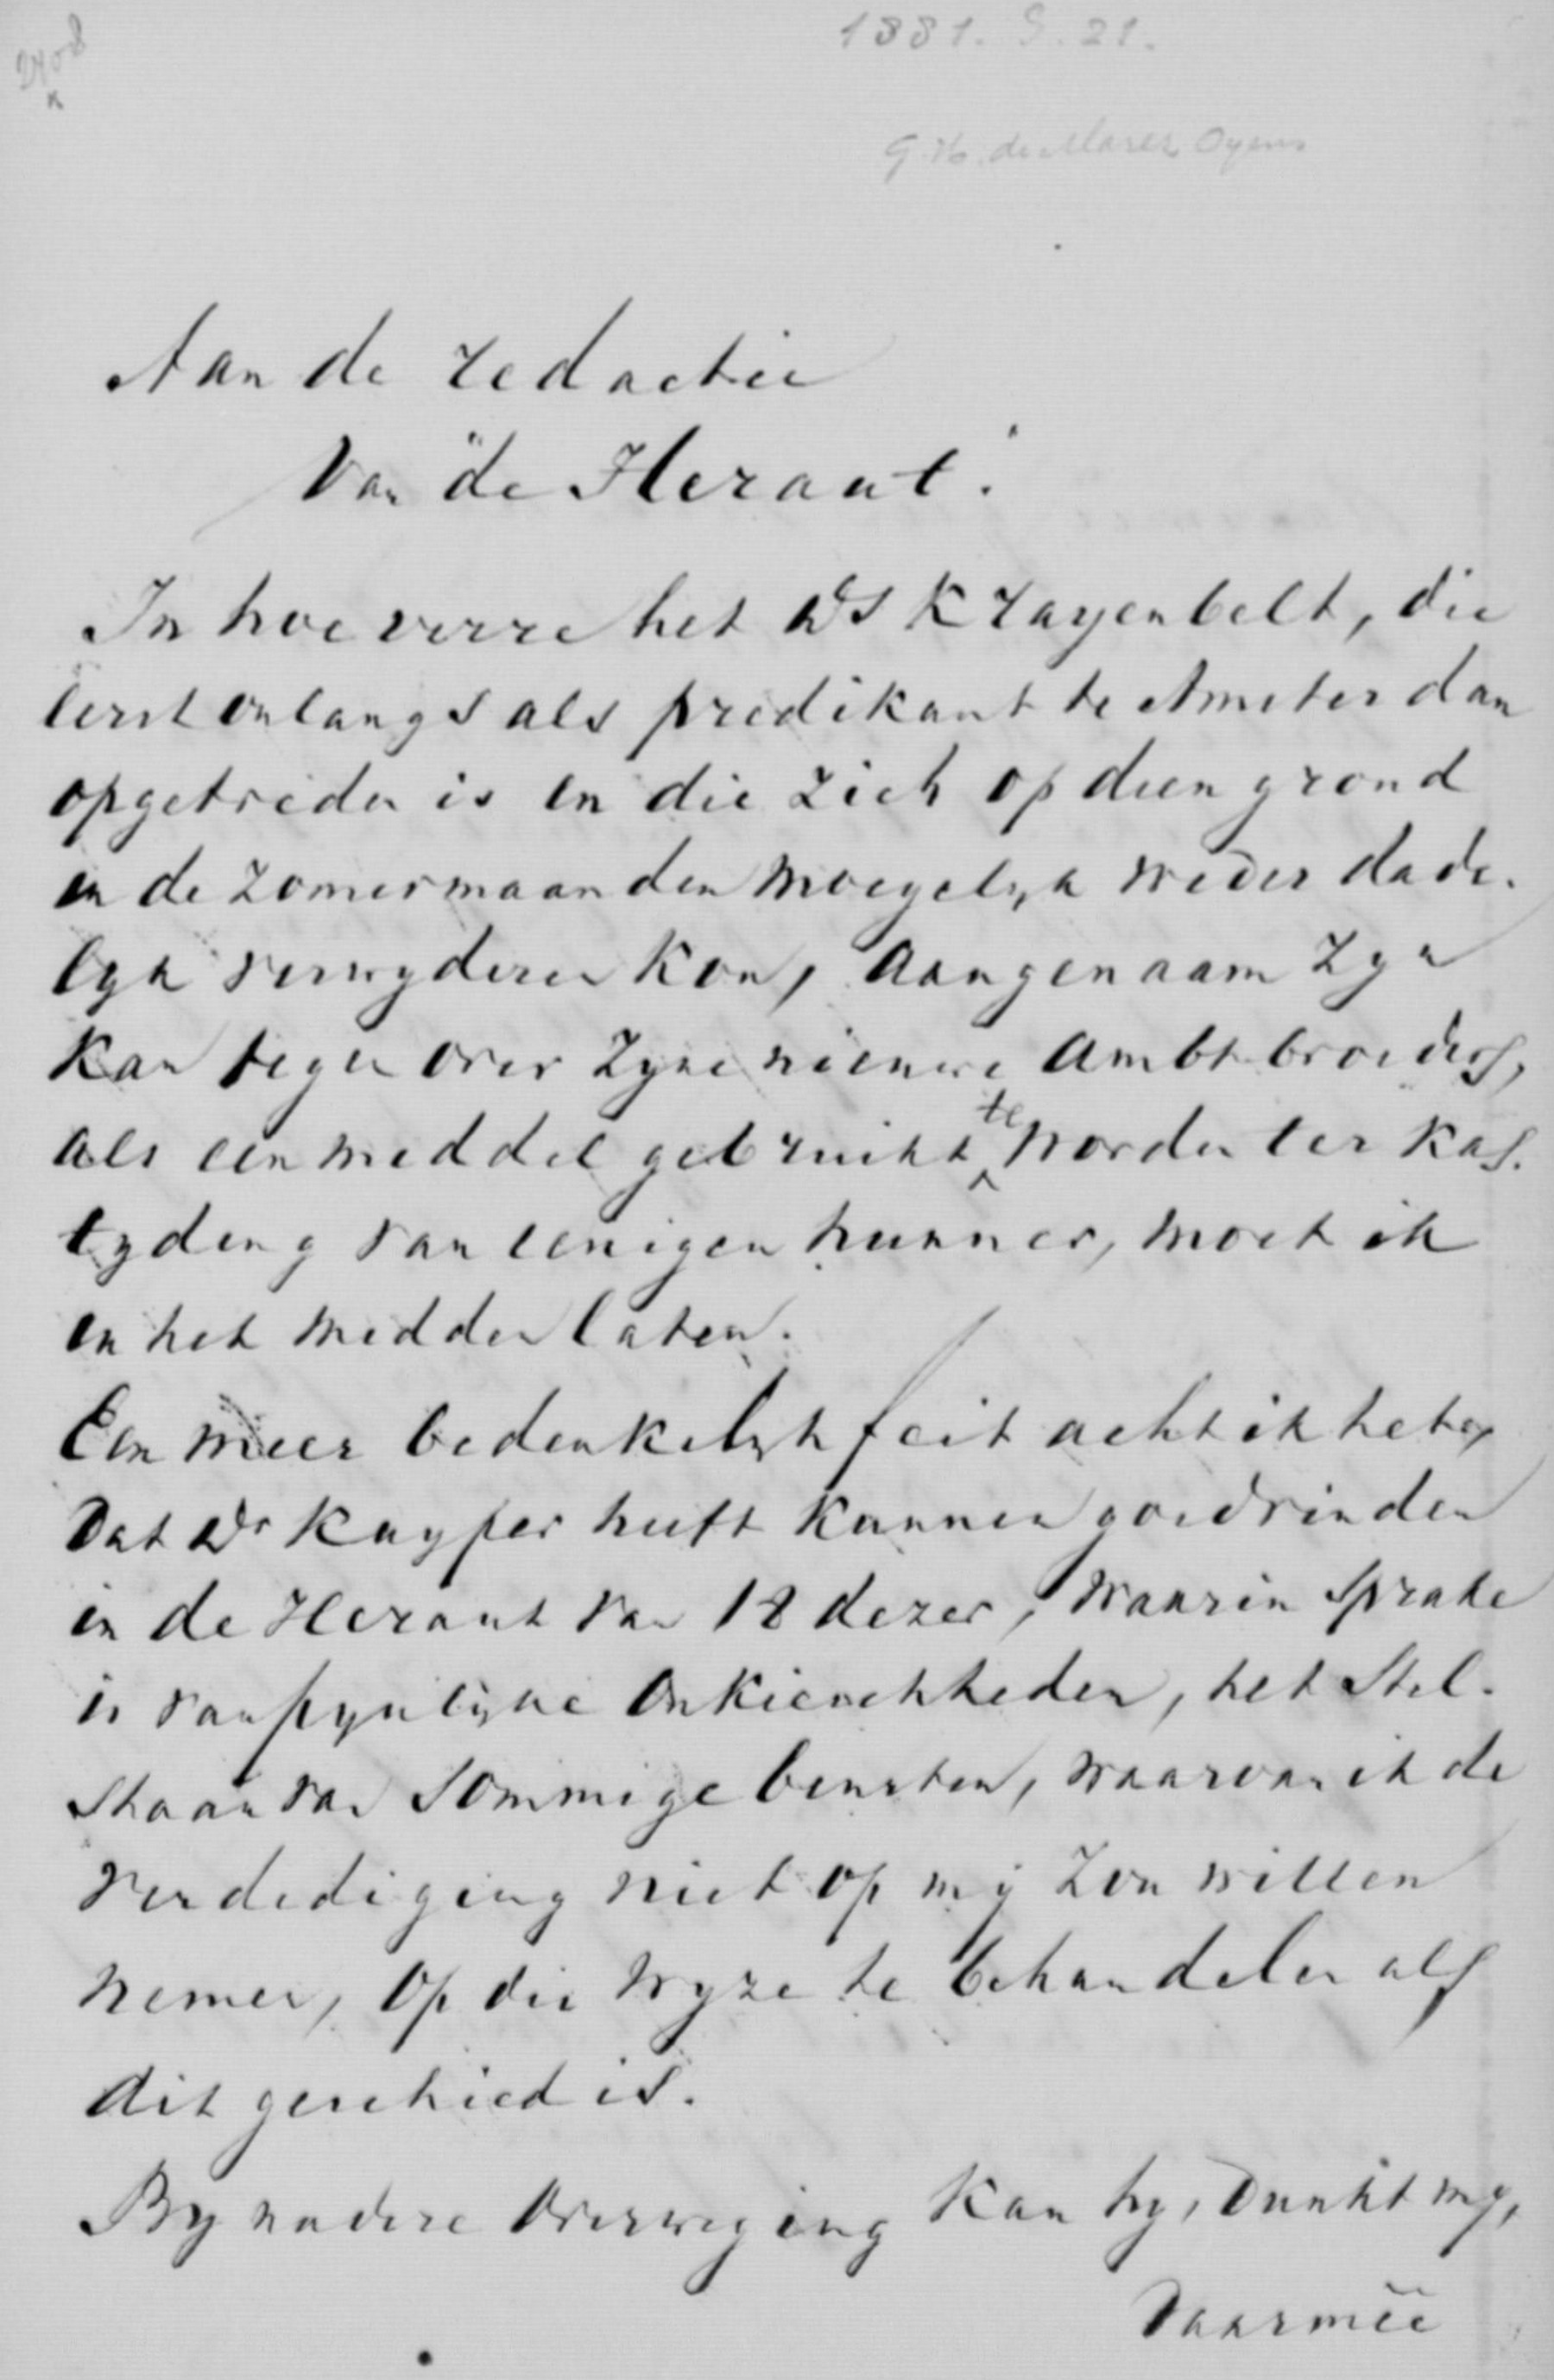 2408
1881. 9. 21.
G. H. de Marez Oyens
Aan de redactie
van "de Heraut".
In hoeverre het Ds Krayenbelt, die
eerst onlangs als predikant te Amsterdam
opgetreden is en die zich op dien grond
in de zomermaanden moeyelyk weder dade-
lyk verwyderen kon, aangenaam zyn
kan tegenover zyne nieuwe Ambtbroeders,
als een middel gebruikt te worden ter kas-
tyding van eenigen hunner, moet ik
in het midden laten.
Een meer bedenkelyk feit acht ik het,
dat Dr Kuyper heeft kunnen goedvinden
in de Heraut van 18 dezer, waarin sprake
is van pynlyke onkieschheden, het stil-
staan van sommige beurten, waarvan ik de
verdediging niet op my zou willen
nemen, op die wyze te behandelen als
dit geschied is.
By nadere overweging kan hy, dunkt my,
daarmeê